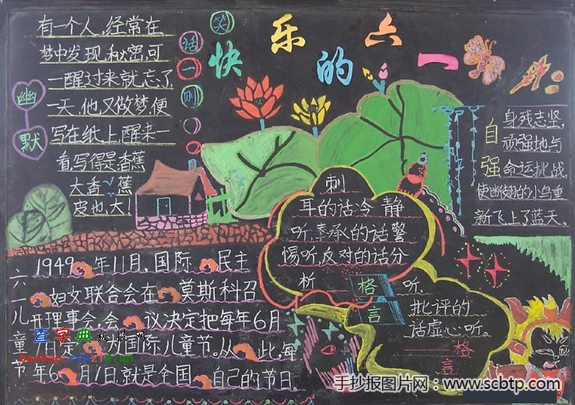 快乐的六一
笑
话
一
则
幽默
有一个人,经常在
梦中发现,秘密,可
一醒过来就忘了
一天,他又做梦,便
写在纸上,醒来一
看,写得是香蕉
大香蕉
皮也,大!
自强
身残志坚,
顽强地与
命运挑战,
新飞上了蓝天。
刺
耳的话冷静
听,奉承的话警
惕听,反对的话分
析听。
格言
批评的
话虚心听。
格
言
六一儿童节
1949年11月,国际民主
妇女联合会在莫斯科召
开理事会,会议决定把每年6月
1日定国际儿童节。从此,每
年6月1日就是全国自己的节日。
查字典
手抄报图片网-www.scbtp.com